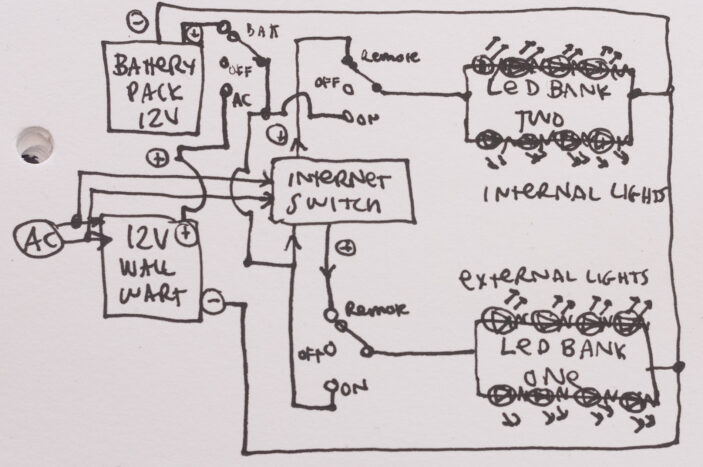 −
+
BATT
BATTERY
PACK
12V
OFF
AC
+
REMOTE
OFF
ON
+
LED BANK
TWO
INTERNAL LIGHTS
INTERNET
SWITCH
AC
12V
WALL
WART
+
−
+
REMOTE
OFF
ON
EXTERNAL LIGHTS
LED BANK
ONE